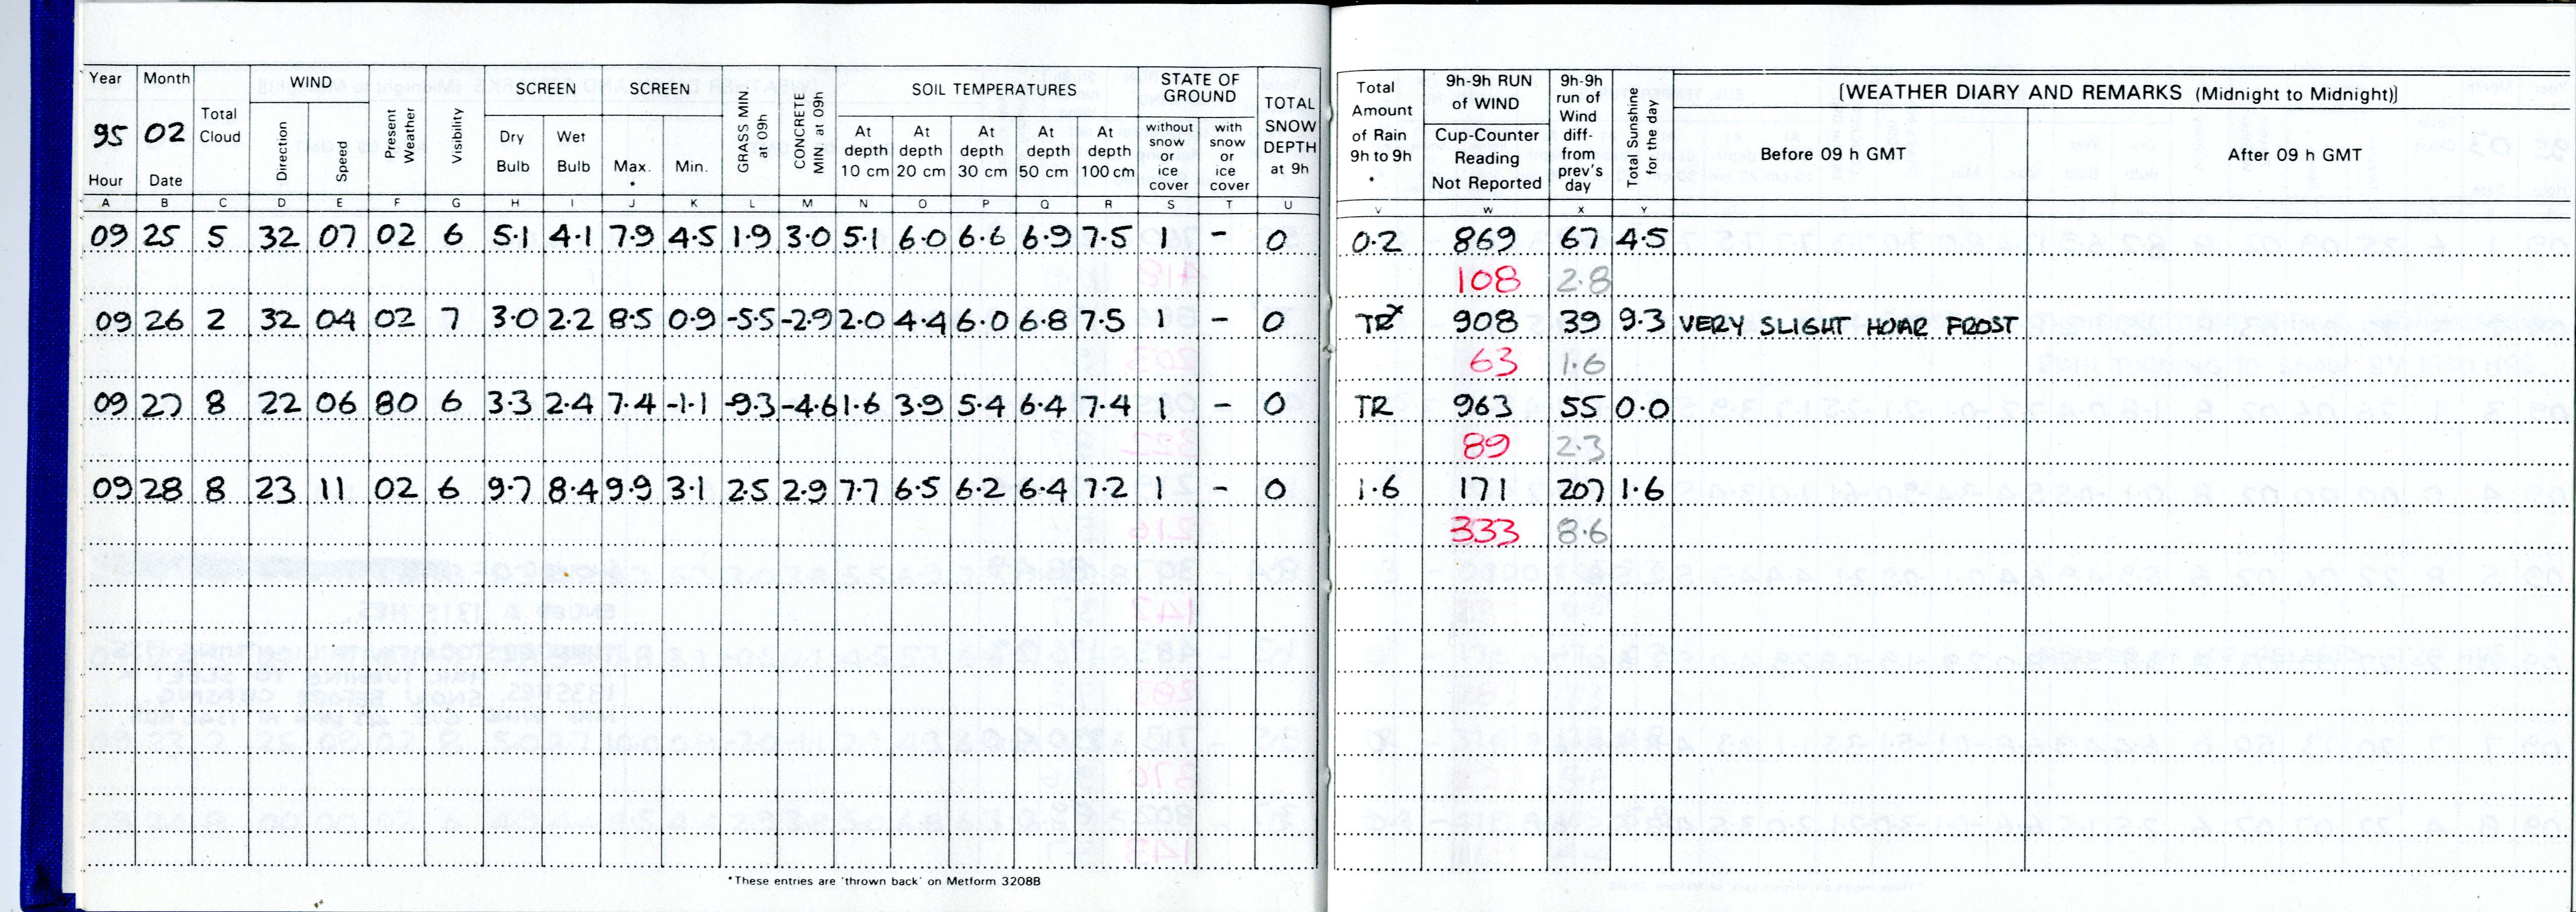 Year Month WIND SCREEN SCREEN GRASS MIN at 09h CONCRETE MIN at 09h SOIL TEMPERATURES STATE OF GROUND TOTAL SNOW DEPTH at 9h
95 02 Total Cloud Direction Speed Present Weather Visibility Dry Bulb Wet Bulb Max. * Min. At depth 10 cm At depth 20 cm At depth 30 cm At depth 50 cm At depth 100 cm without snow or ice cover with snow or ice cover
Hour Date
A B C D E F G H I J K L M N O P Q R S T U
09 25 5 32 07 02 6 5.1 4.1 7.9 4.5 1.9 3.0 5.1 6.0 6.6 6.9 7.5 1 - 0
09 26 2 32 04 02 7 3.0 2.2 8.5 0.9 -5.5 -2.9 2.0 4.4 6.0 6.8 7.5 1 - 0
09 27 8 22 06 80 6 3.3 2.4 7.4 -1.1 -9.3 -4.6 1.6 3.9 5.4 6.4 7.4 1 - 0
09 28 8 23 11 02 6 9.7 8.4 9.9 3.1 2.5 2.9 7.7 6.5 6.2 6.4 7.2 1 - 0
*These entries are 'thrown back' on Metform 3208B
Total Amount of Rain 9h to 9h * 9h-9h RUN of WIND Cup-Counter Reading Not Reported 9h-9h run of Wind diff- from prev's day Total Sunshine for the day [WEATHER DIARY AND REMARKS (Midnight to Midnight)]
Before 09 h GMT After 09 h GMT
V W X Y
0.2 869 67 4.5
108 2.8
TR 908 39 9.3 VERY SLIGHT HOAR FROST
63 1.6
TR 963 55 0.0
89 2.3
1.6 171 207 1.6
333 8.6